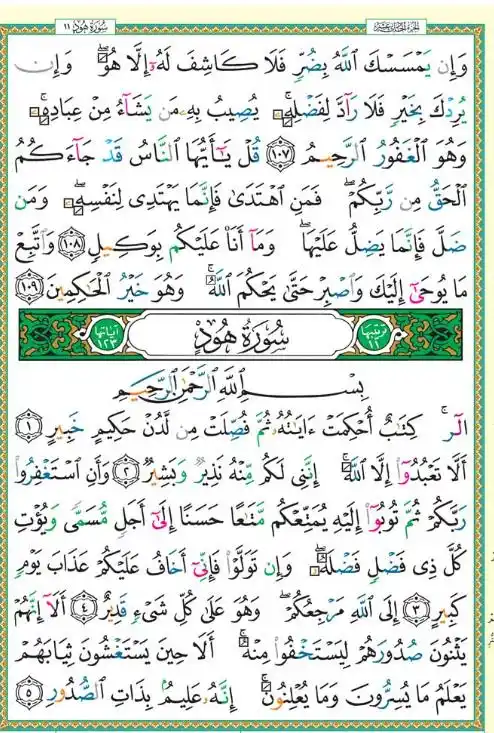 سُورَةُ هُودٍ ١١
الجزء الحادي عشر
وَإِن يَمْسَسْكَ ٱللَّهُ بِضُرٍّ فَلَا كَاشِفَ لَهُۥٓ إِلَّا هُوَۖ وَإِن
يُرِدْكَ بِخَيْرٍ فَلَا رَآدَّ لِفَضْلِهِۦۚ يُصِيبُ بِهِۦ مَن يَشَآءُ مِنْ عِبَادِهِۦۚ
وَهُوَ ٱلْغَفُورُ ٱلرَّحِيمُ ١٠٧ قُلْ يَٰٓأَيُّهَا ٱلنَّاسُ قَدْ جَآءَكُمُ
ٱلْحَقُّ مِن رَّبِّكُمْۖ فَمَنِ ٱهْتَدَىٰ فَإِنَّمَا يَهْتَدِى لِنَفْسِهِۦۖ وَمَن
ضَلَّ فَإِنَّمَا يَضِلُّ عَلَيْهَاۖ وَمَآ أَنَا۠ عَلَيْكُم بِوَكِيلٍ ١٠٨ وَٱتَّبِعْ
مَا يُوحَىٰٓ إِلَيْكَ وَٱصْبِرْ حَتَّىٰ يَحْكُمَ ٱللَّهُۚ وَهُوَ خَيْرُ ٱلْحَٰكِمِينَ ١٠٩
ترتيبها ١١ سُورَةُ هُودٍ آياتها ١٢٣
بِسْمِ ٱللَّهِ ٱلرَّحْمَٰنِ ٱلرَّحِيمِ
الٓرۚ كِتَٰبٌ أُحْكِمَتْ ءَايَٰتُهُۥ ثُمَّ فُصِّلَتْ مِن لَّدُنْ حَكِيمٍ خَبِيرٍ ١
أَلَّا تَعْبُدُوٓا۟ إِلَّا ٱللَّهَۚ إِنَّنِى لَكُم مِّنْهُ نَذِيرٌ وَبَشِيرٌ ٢ وَأَنِ ٱسْتَغْفِرُوا۟
رَبَّكُمْ ثُمَّ تُوبُوٓا۟ إِلَيْهِ يُمَتِّعْكُم مَّتَٰعًا حَسَنًا إِلَىٰٓ أَجَلٍ مُّسَمًّى وَيُؤْتِ
كُلَّ ذِى فَضْلٍ فَضْلَهُۥۖ وَإِن تَوَلَّوْا۟ فَإِنِّىٓ أَخَافُ عَلَيْكُمْ عَذَابَ يَوْمٍ
كَبِيرٍ ٣ إِلَى ٱللَّهِ مَرْجِعُكُمْۖ وَهُوَ عَلَىٰ كُلِّ شَىْءٍ قَدِيرٌ ٤ أَلَآ إِنَّهُمْ
يَثْنُونَ صُدُورَهُمْ لِيَسْتَخْفُوا۟ مِنْهُۚ أَلَا حِينَ يَسْتَغْشُونَ ثِيَابَهُمْ
يَعْلَمُ مَا يُسِرُّونَ وَمَا يُعْلِنُونَۚ إِنَّهُۥ عَلِيمٌۢ بِذَاتِ ٱلصُّدُورِ ٥